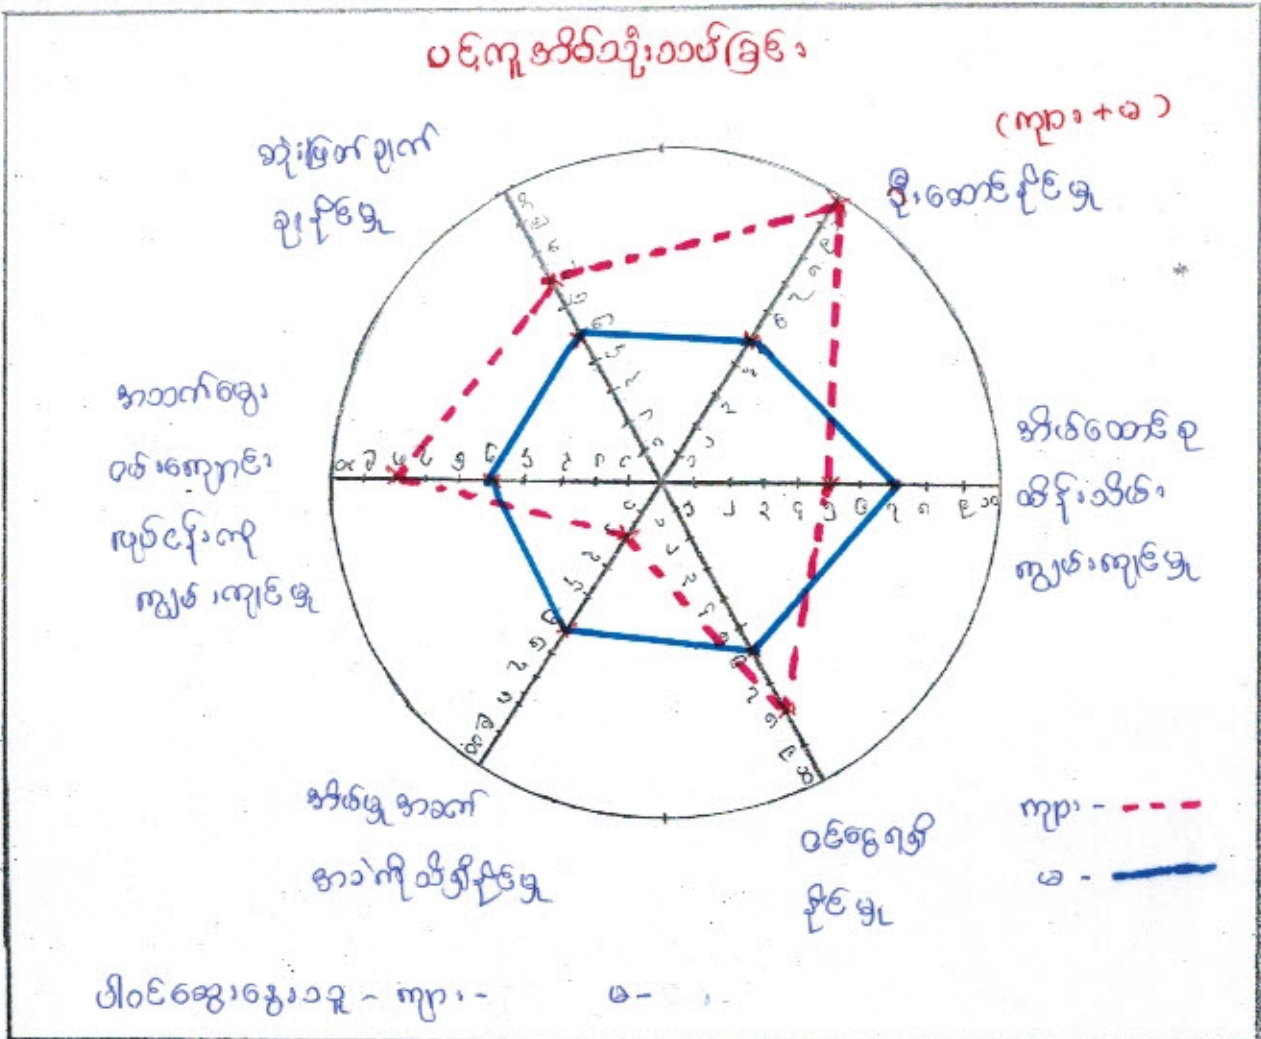 ပင့်ကူအိမ်သုံးသပ်ခြင်း
(ကျား + မ)
ဆုံးဖြတ်ချက်
ချနိုင်မှု
ဦးဆောင်နိုင်မှု
အသက်မွေး
ဝမ်းကျောင်း
လုပ်ငန်းကို
ကျွမ်းကျင်မှု
အိမ်ထောင်စု
ထိန်းသိမ်း
ကျွမ်းကျင်မှု
အိမ်မှုအခက်
အခဲကိုသိရှိနိုင်မှု
ဝင်ငွေရရှိ
နိုင်မှု
ကျား -
မ -
ပါဝင်ဆွေးနွေးသူ - ကျား - မ -